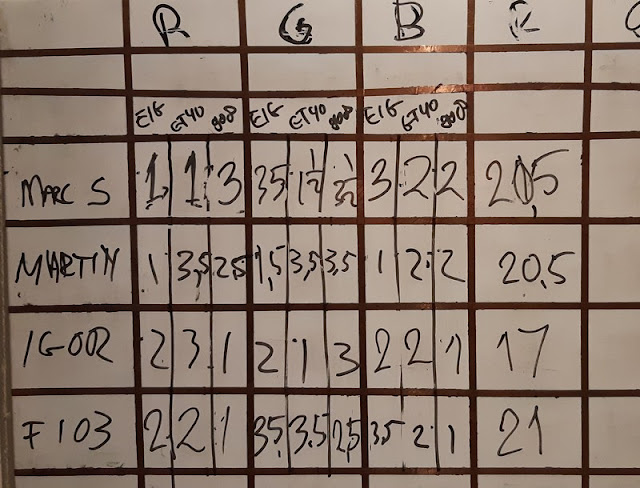 R G B
E/G GT40 908 E/G GT40 908 E/G GT40 908
MARC S 1 1 3 3,5 1½ 3½ 3 2 2 20,5
MARTIN 1 3,5 2,5 1,5 3,5 3,5 1 2 2 20,5
IGOOR 2 3 1 2 1 3 2 2 1 17
F103 2 2 1 3,5 3.5 2,5 3,5 2 1 21